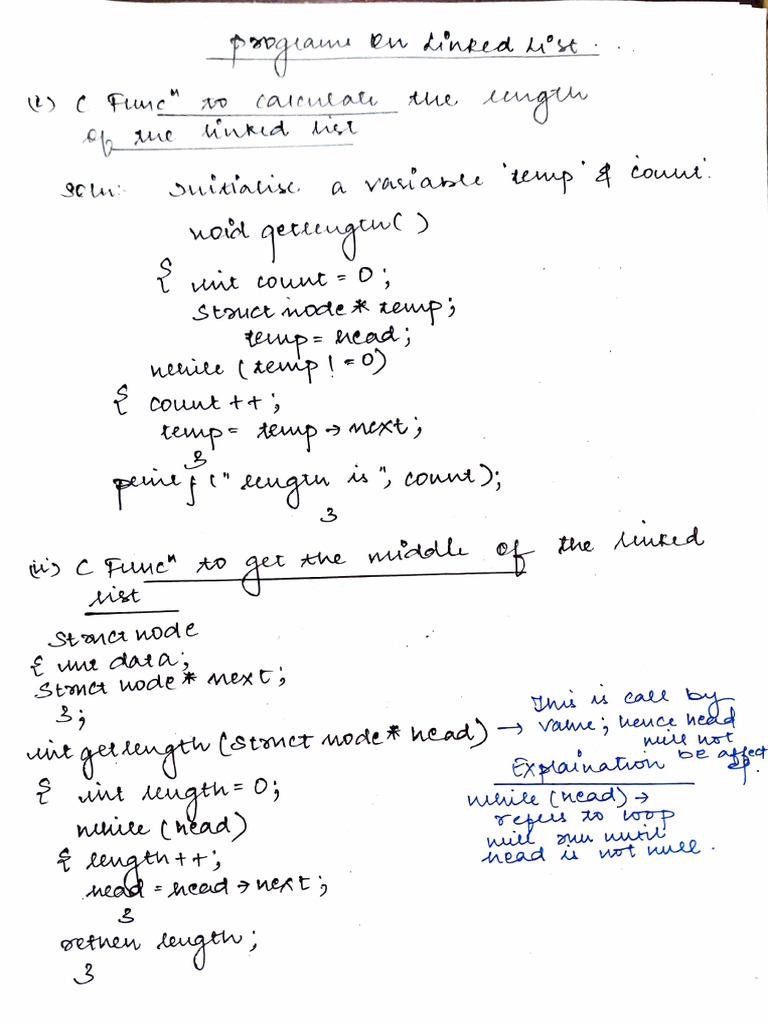 programs on Linked List...
(i) C Funcⁿ to calculate the length
of the linked list
Soln: Initialise a variable 'temp' & count.
void getlength()
{ int count = 0;
struct node * temp;
temp = head;
while (temp != 0)
{ count ++;
temp = temp → next;
}
printf (" length is", count);
}
(ii) C Funcⁿ to get the middle of the linked
list
Struct node
{ int data;
Struct node * next;
};
int getlength (Struct node * head) → This is call by
value; hence head
will not
be affect
{ int length = 0;
while (head)
{ length ++;
head = head → next;
}
return length;
}
Explaination
while (head) →
refers to loop
will run until
head is not null.